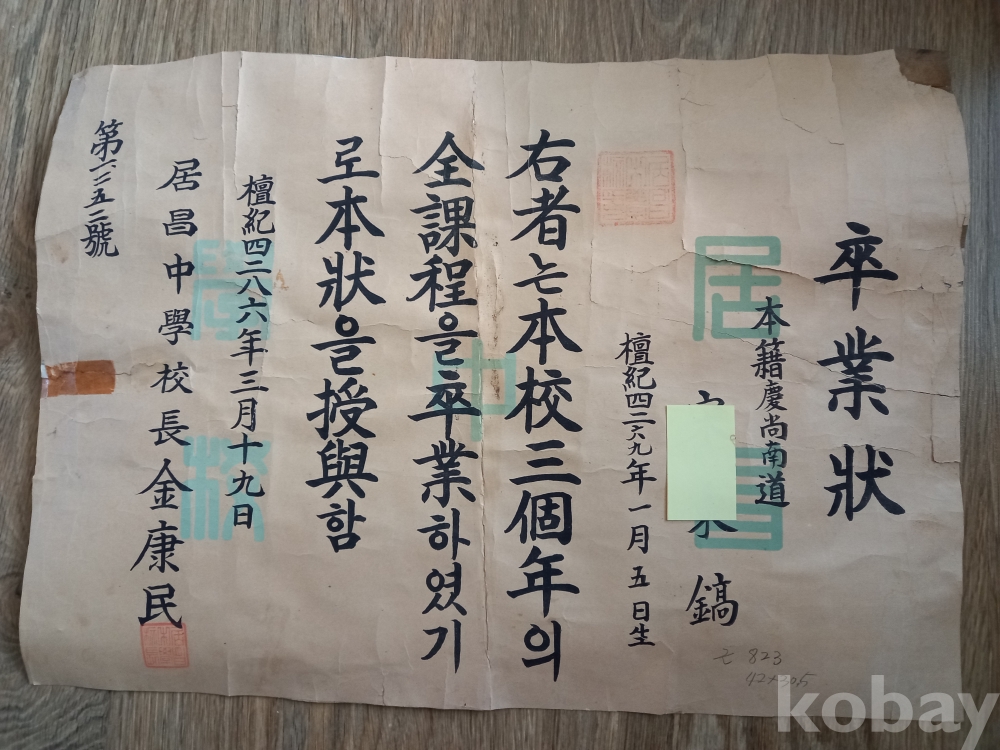 卒業狀
本籍慶尚南道
鎬
檀紀四二六九年一月五日生
右者는本校三個年의
全課程을卒業하였기
로本狀을授與함
檀紀四二八六年三月十九日
居昌中學校長金康民
第一二五二號
居昌
中
學校
823
kobay